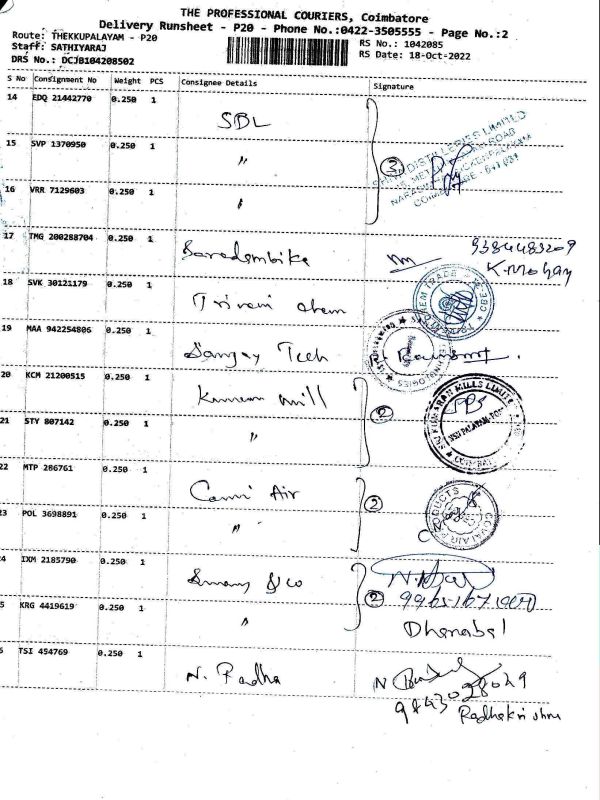 THE PROFESSIONAL COURIERS, Coimbatore
Delivery Runsheet - P20 - Phone No.:0422-3505555 - Page No.:2
Route: THEKKUPALAYAM - P20
Staff: SATHIYARAJ
DRS No.: DCJB104208502
RS No.: 1042085
RS Date: 18-Oct-2022
S No Consignment No Weight PCS Consignee Details Signature
14 EDQ 21442770 0.250 1 SBL
15 SVP 1370950 0.250 1 "
3
16 VRR 7129603 0.250 1 "
17 TMG 200288704 0.250 1
K.Mohan
18 SVK 30121179 0.250 1 Triveni chem
CHEM TRADE
19 MAA 942254806 0.250 1 Sanjay Tech
20 KCM 21200515 0.250 1 mill 2
SRI KUMARAN MILLS LIMITED
21 STY 807142 0.250 1 "
22 MTP 286761 0.250 1 Air 2
23 POL 3698891 0.250 1 "
COVAI AIR PRODUCTS
24 IXM 2185790 0.250 1 & co 2
5 KRG 4419619 0.250 1 "
Dhanabal
6 TSI 454769 0.250 1 N. Radha
9843028029
Radhakrishna